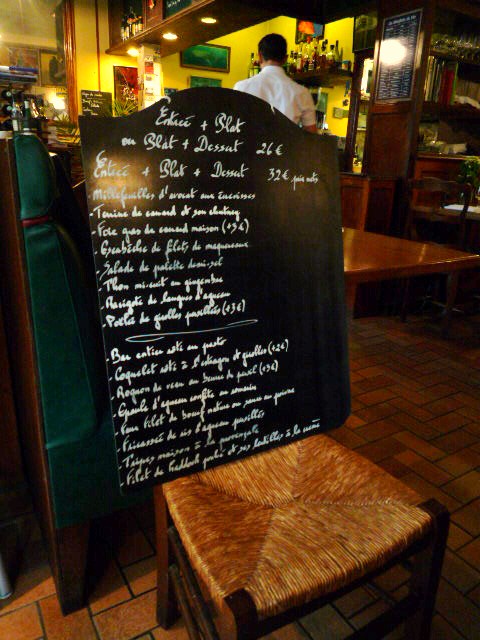 Entrée + Plat
ou Plat + Dessert 26€
Entrée + Plat + Dessert 32€ prix nets
Millefeuilles d'avocat aux écrevisses
- Terrine de canard et son chutney
- Foie gras de canard maison (+3€)
- Escabèche de filets de maquereaux
- Salade de palette demi-sel
- Thon mi-cuit au gingembre
- Ravigote de langues d'agneau
- Poêlée de girolles persillées (+3€)
- Bar entier rôti au pesto
- Coquelet rôti à l'estragon et girolles (+2€)
- Rognon de veau au beurre de persil (+3€)
- Gueule d'agneau confite au romarin
- Faux filet de bœuf nature ou sauce au poivre
- Fricassée de ris d'agneau persillés
- Tripes maison à la provençale
- Filet de haddock poché et ses lentilles à la crème